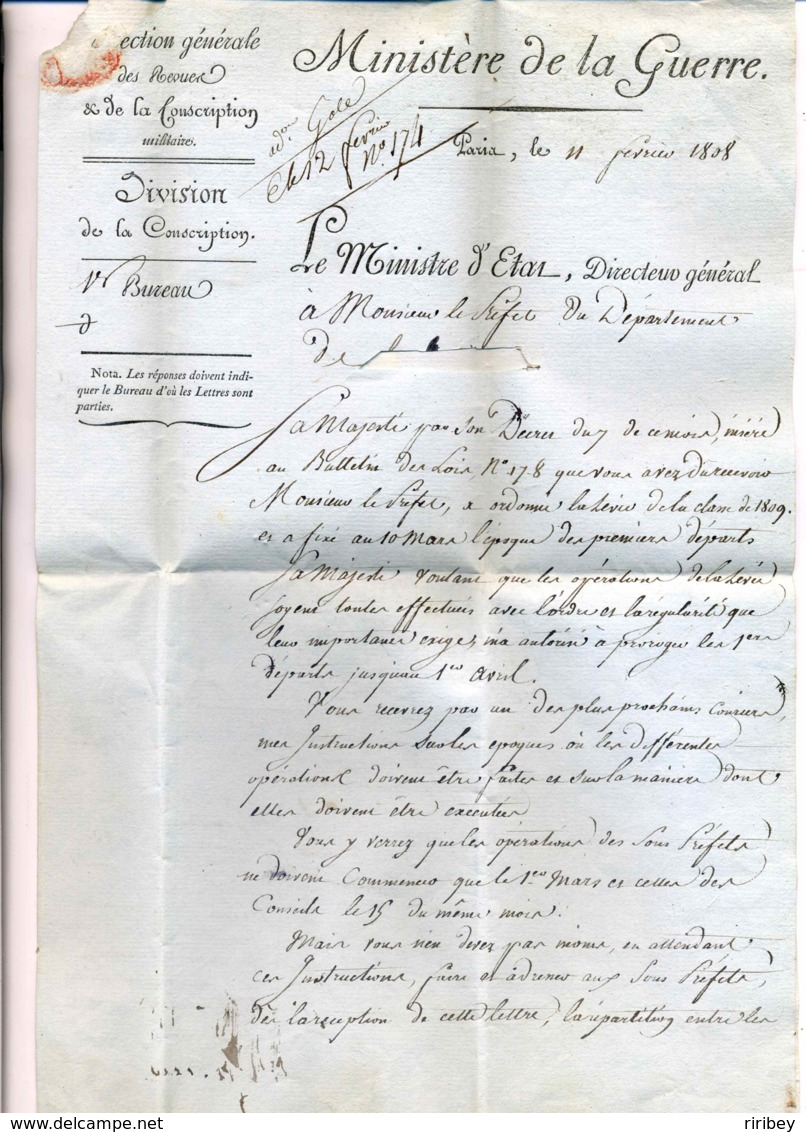 ection générale
des Revues
& de la Conscription
militaire.
Division
de la Conscription.
1er Bureau
Nota. Les réponses doivent indi-
quer le Bureau d'où les Lettres sont
parties.
Ministère de la Guerre.
adon Gale
le 12 février
No. 174
Paris, le 11 février 1808
Le Ministre d'Etat, Directeur général
à Monsieur le Préfet du Département
de
Sa Majesté par son Décret du 7 de ce mois, inséré
au Bulletin des Lois, No. 178 que vous avez du recevoir
Monsieur le Préfet, a ordonné la levée de la classe de 1809.
et a fixé au 10 Mars l'époque des premiers départs
Sa Majesté voulant que les opérations de la levée
soyent toutes effectuées avec l'ordre et la régularité que
leur importance exige, m'a autorisé à proroger les 1ers
départs jusqu'au 1er avril.
Vous recevrez par un des plus prochains Couriers,
mes Instructions sur les époques où les différentes
opérations doivent être faites et sur la manière dont
elles doivent être exécutées
Vous y verrez que les opérations des Sous Préfets
ne doivent Commencer que le 1er Mars et celles des
Conseils le 15 du même mois.
Mais vous n'en devez pas moins, en attendant
ces Instructions, faire et adresser aux Sous Préfets,
dès la réception de cette lettre, la répartition entre les
ririбey